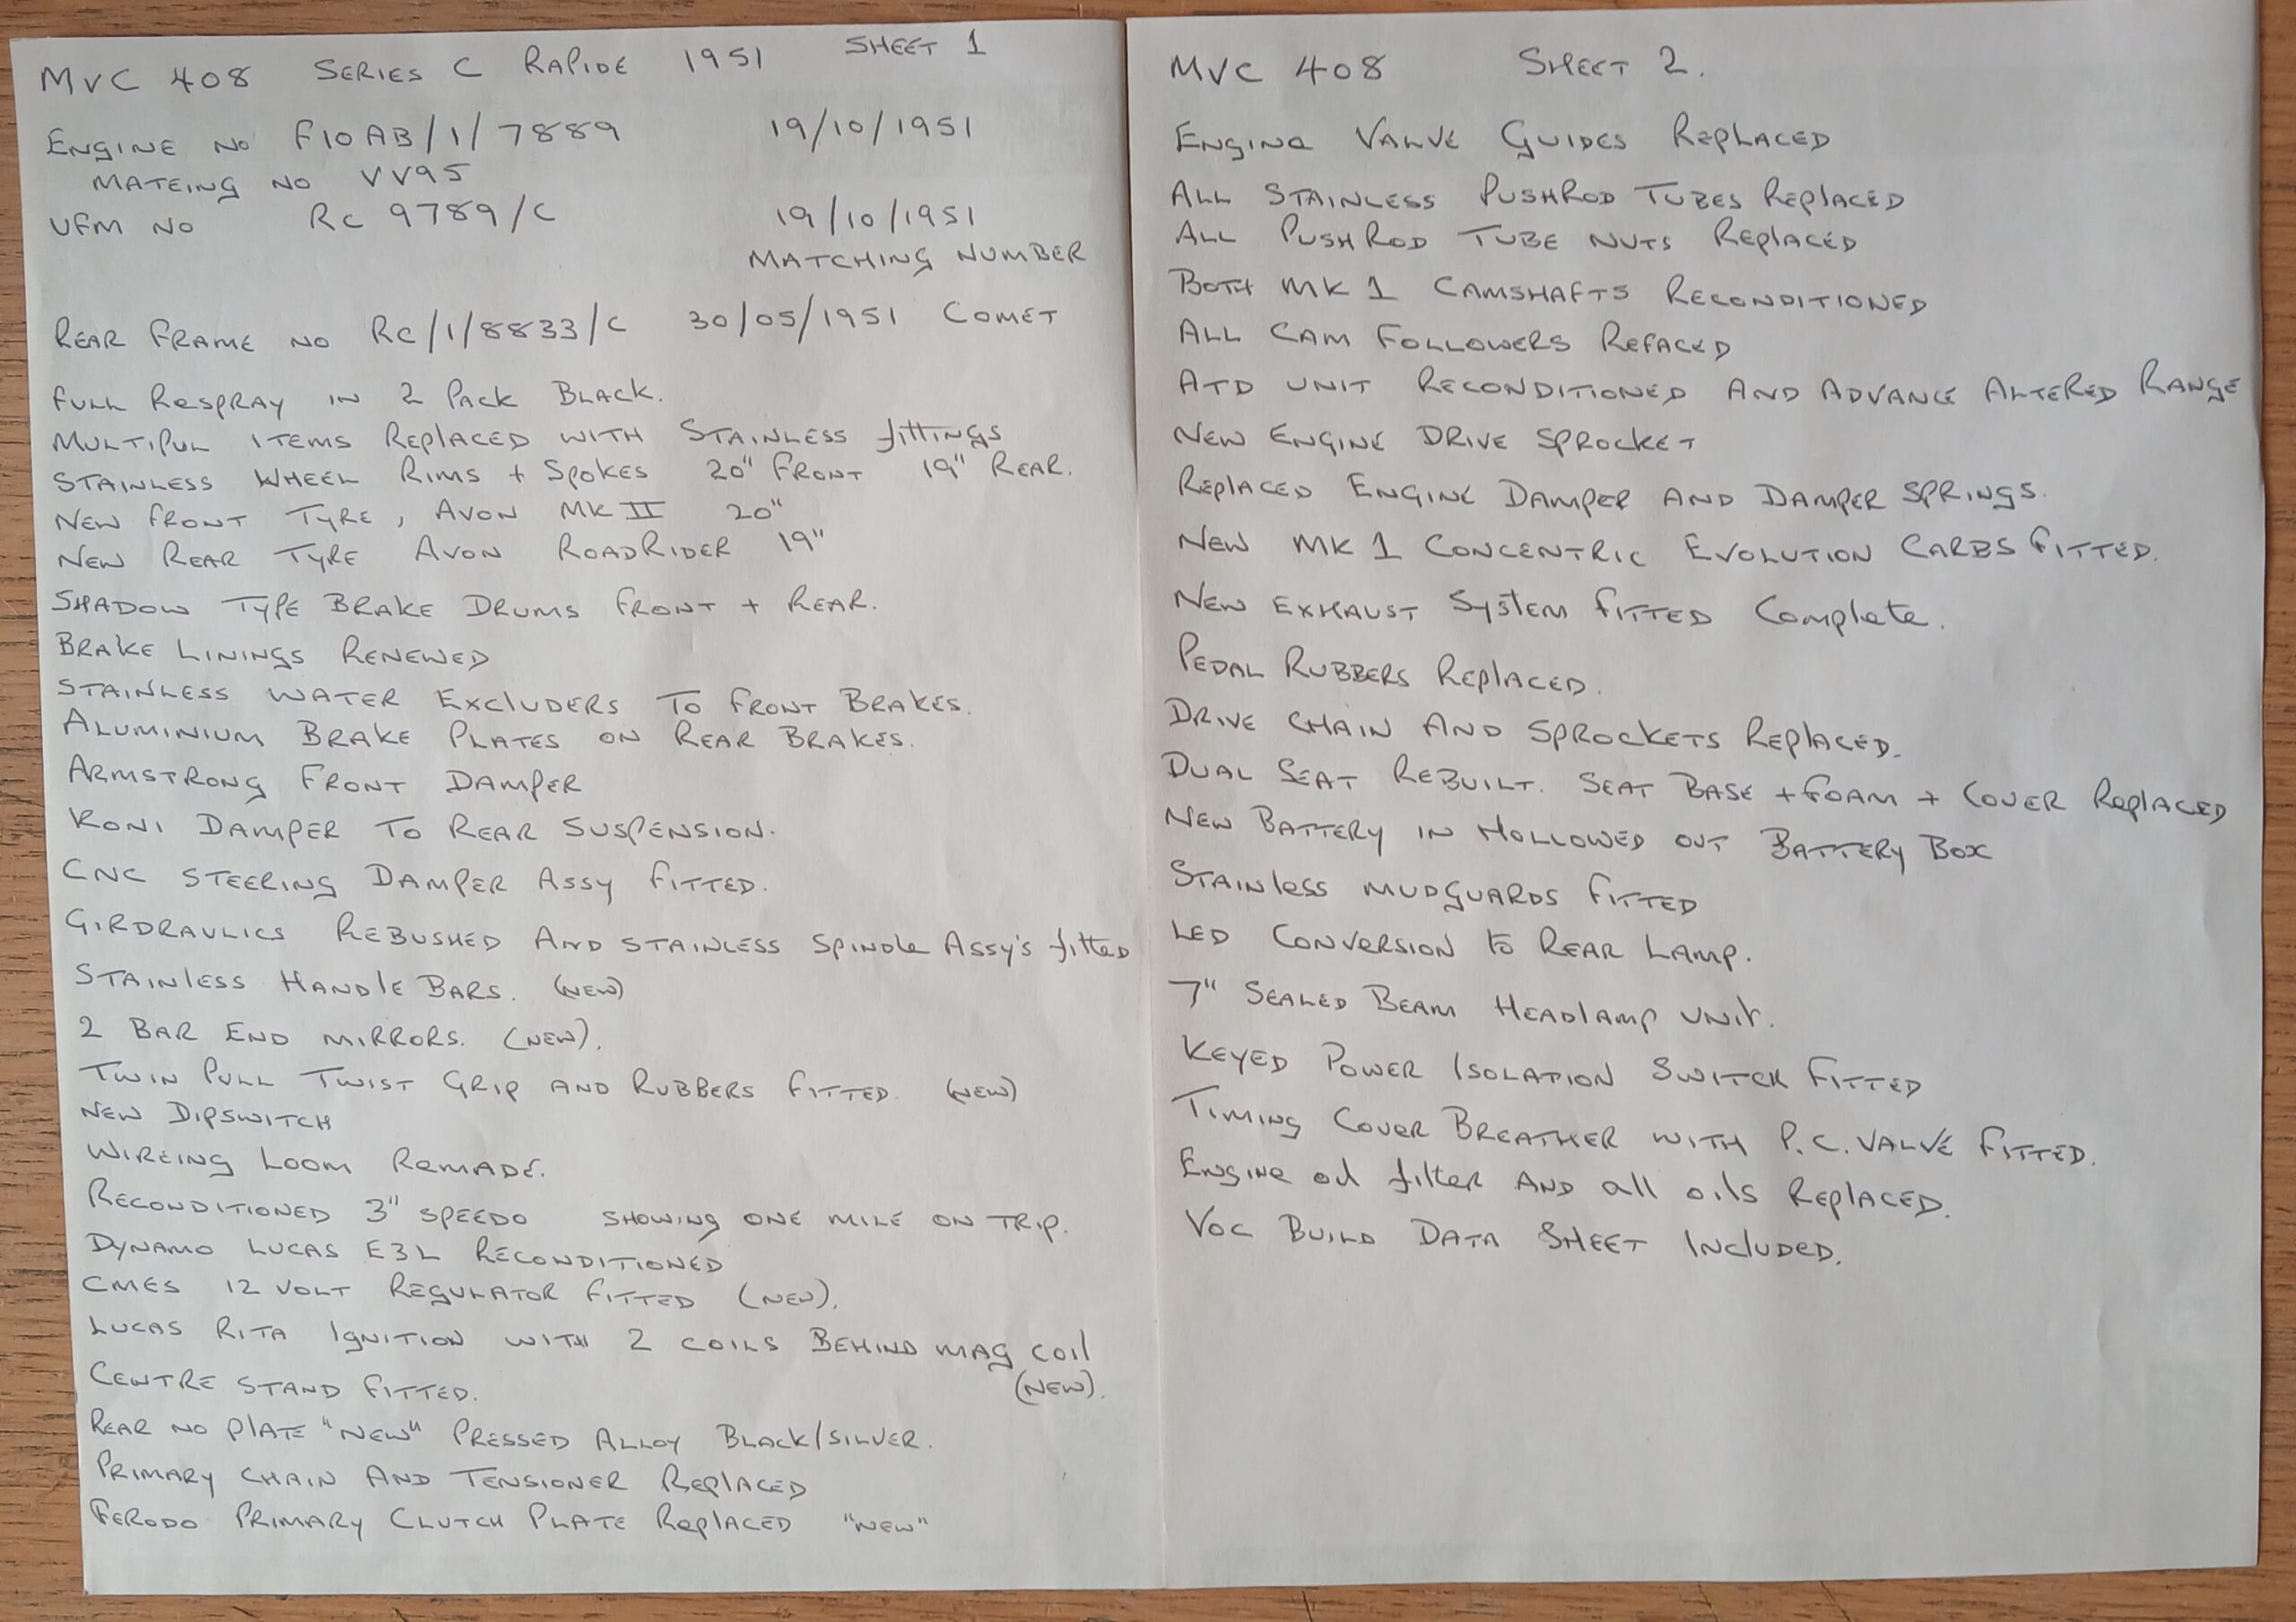 MVC 408 SERIES C RAPIDE 1951 SHEET 1
ENGINE NO F10AB/1/7889 19/10/1951
MATEING NO VV95
UFM NO RC 9789/C 19/10/1951
MATCHING NUMBER
REAR FRAME NO RC/1/8833/C 30/05/1951 COMET
FULL RESPRAY IN 2 PACK BLACK.
MULTIPUL ITEMS REPLACED WITH STAINLESS fITTINGS
STAINLESS WHEEL RIMS + SPOKES 20" FRONT 19" REAR.
NEW FRONT TYRE, AVON MK II 20"
NEW REAR TYRE AVON ROADRIDER 19"
SHADOW TYPE BRAKE DRUMS FRONT + REAR.
BRAKE LININGS RENEWED
STAINLESS WATER EXCLUDERS TO FRONT BRAKES.
ALUMINIUM BRAKE PLATES ON REAR BRAKES.
ARMSTRONG FRONT DAMPER
KONI DAMPER TO REAR SUSPENSION.
CNC STEERING DAMPER ASSY FITTED.
GIRDRAULICS REBUSHED AND STAINLESS SPINDLE ASSY'S fitted
STAINLESS HANDLE BARS. (NEW)
2 BAR END MIRRORS. (NEW).
TWIN PULL TWIST GRIP AND RUBBERS FITTED. (NEW)
NEW DIPSWITCH
WIREING LOOM REMADE.
RECONDITIONED 3" SPEEDO SHOWING ONE MILE ON TRIP.
DYNAMO LUCAS E3L RECONDITIONED
CMES 12 VOLT REGULATOR FITTED (NEW).
LUCAS RITA IGNITION WITH 2 COILS BEHIND MAG COIL
(NEW).
CENTRE STAND FITTED.
REAR NO PLATE "NEW" PRESSED ALLOY BLACK/SILVER.
PRIMARY CHAIN AND TENSIONER REPLACED
FERODO PRIMARY CLUTCH PLATE REPLACED "NEW"
MVC 408 SHEET 2.
ENGINE VALVE GUIDES REPLACED
ALL STAINLESS PUSHROD TUBES REPLACED
ALL PUSHROD TUBE NUTS REPLACED
BOTH MK 1 CAMSHAFTS RECONDITIONED
ALL CAM FOLLOWERS REFACED
ATD UNIT RECONDITIONED AND ADVANCE ALTERED RANGE
NEW ENGINE DRIVE SPROCKET
REPLACED ENGINE DAMPER AND DAMPER SPRINGS.
NEW MK 1 CONCENTRIC EVOLUTION CARBS FITTED.
NEW EXHAUST SYSTEM FITTED Complete.
PEDAL RUBBERS REPLACED.
DRIVE CHAIN AND SPROCKETS REPLACED.
DUAL SEAT REBUILT. SEAT BASE + FOAM + COVER REPLACED
NEW BATTERY IN HOLLOWED OUT BATTERY BOX
STAINLESS MUDGUARDS FITTED
LED CONVERSION TO REAR LAMP.
7" SEALED BEAM HEADLAMP UNIT.
KEYED POWER ISOLATION SWITCH FITTED
TIMING COVER BREATHER WITH P.C. VALVE FITTED.
ENGINE oil filter AND all oils REPLACED.
VOC BUILD DATA SHEET INCLUDED.